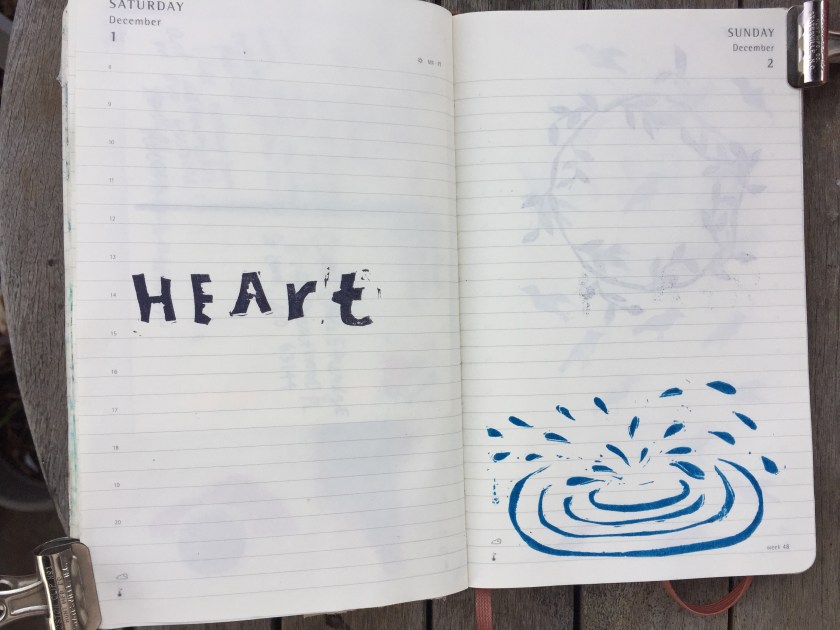 SATURDAY
December
1
8
9
10
11
12
13
14
15
16
17
18
19
20
HEArt
SUNDAY
December
2
week 48